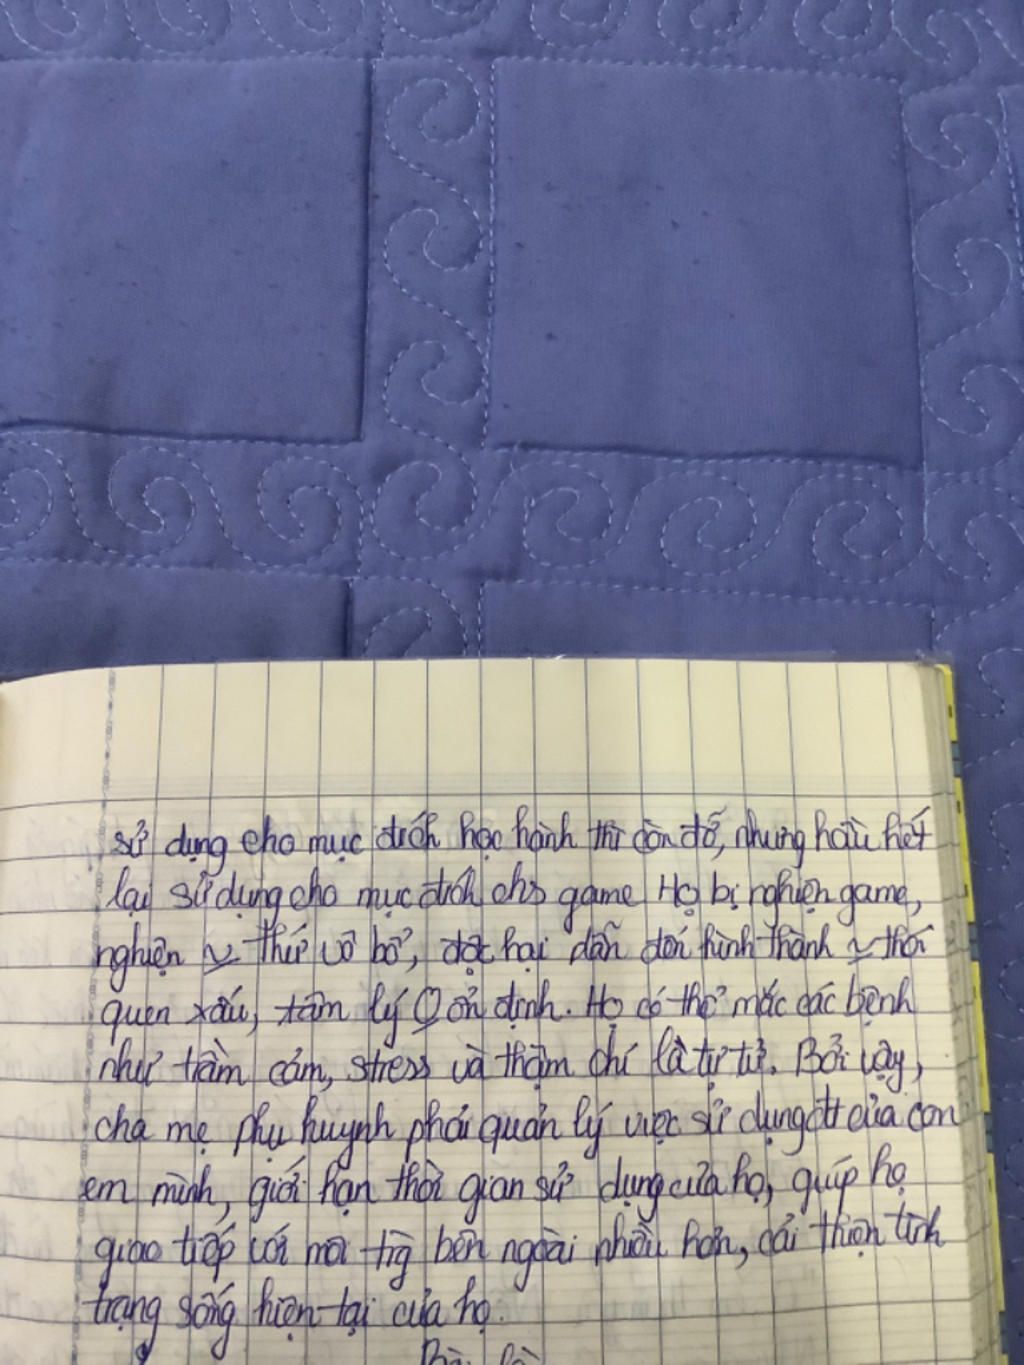 sử dụng cho mục đích học hành thì còn đỡ, nhưng hầu hết
lại sử dụng cho mục đích chs game Họ bị nghiện game,
nghiện ~ thứ vô bổ, độc hại dẫn đến hình thành ~ thói
quen xấu, tâm lý O ổn định. Họ có thể mắc các bệnh
như trầm cảm, stress và thậm chí là tự tử. Bởi vậy,
cha mẹ phụ huynh phải quản lý việc sử dụng đt của con
em mình, giới hạn thời gian sử dụng của họ, giúp họ
giao tiếp với môi trg bên ngoài nhiều hơn, cải thiện tình
trạng sống hiện tại của họ.